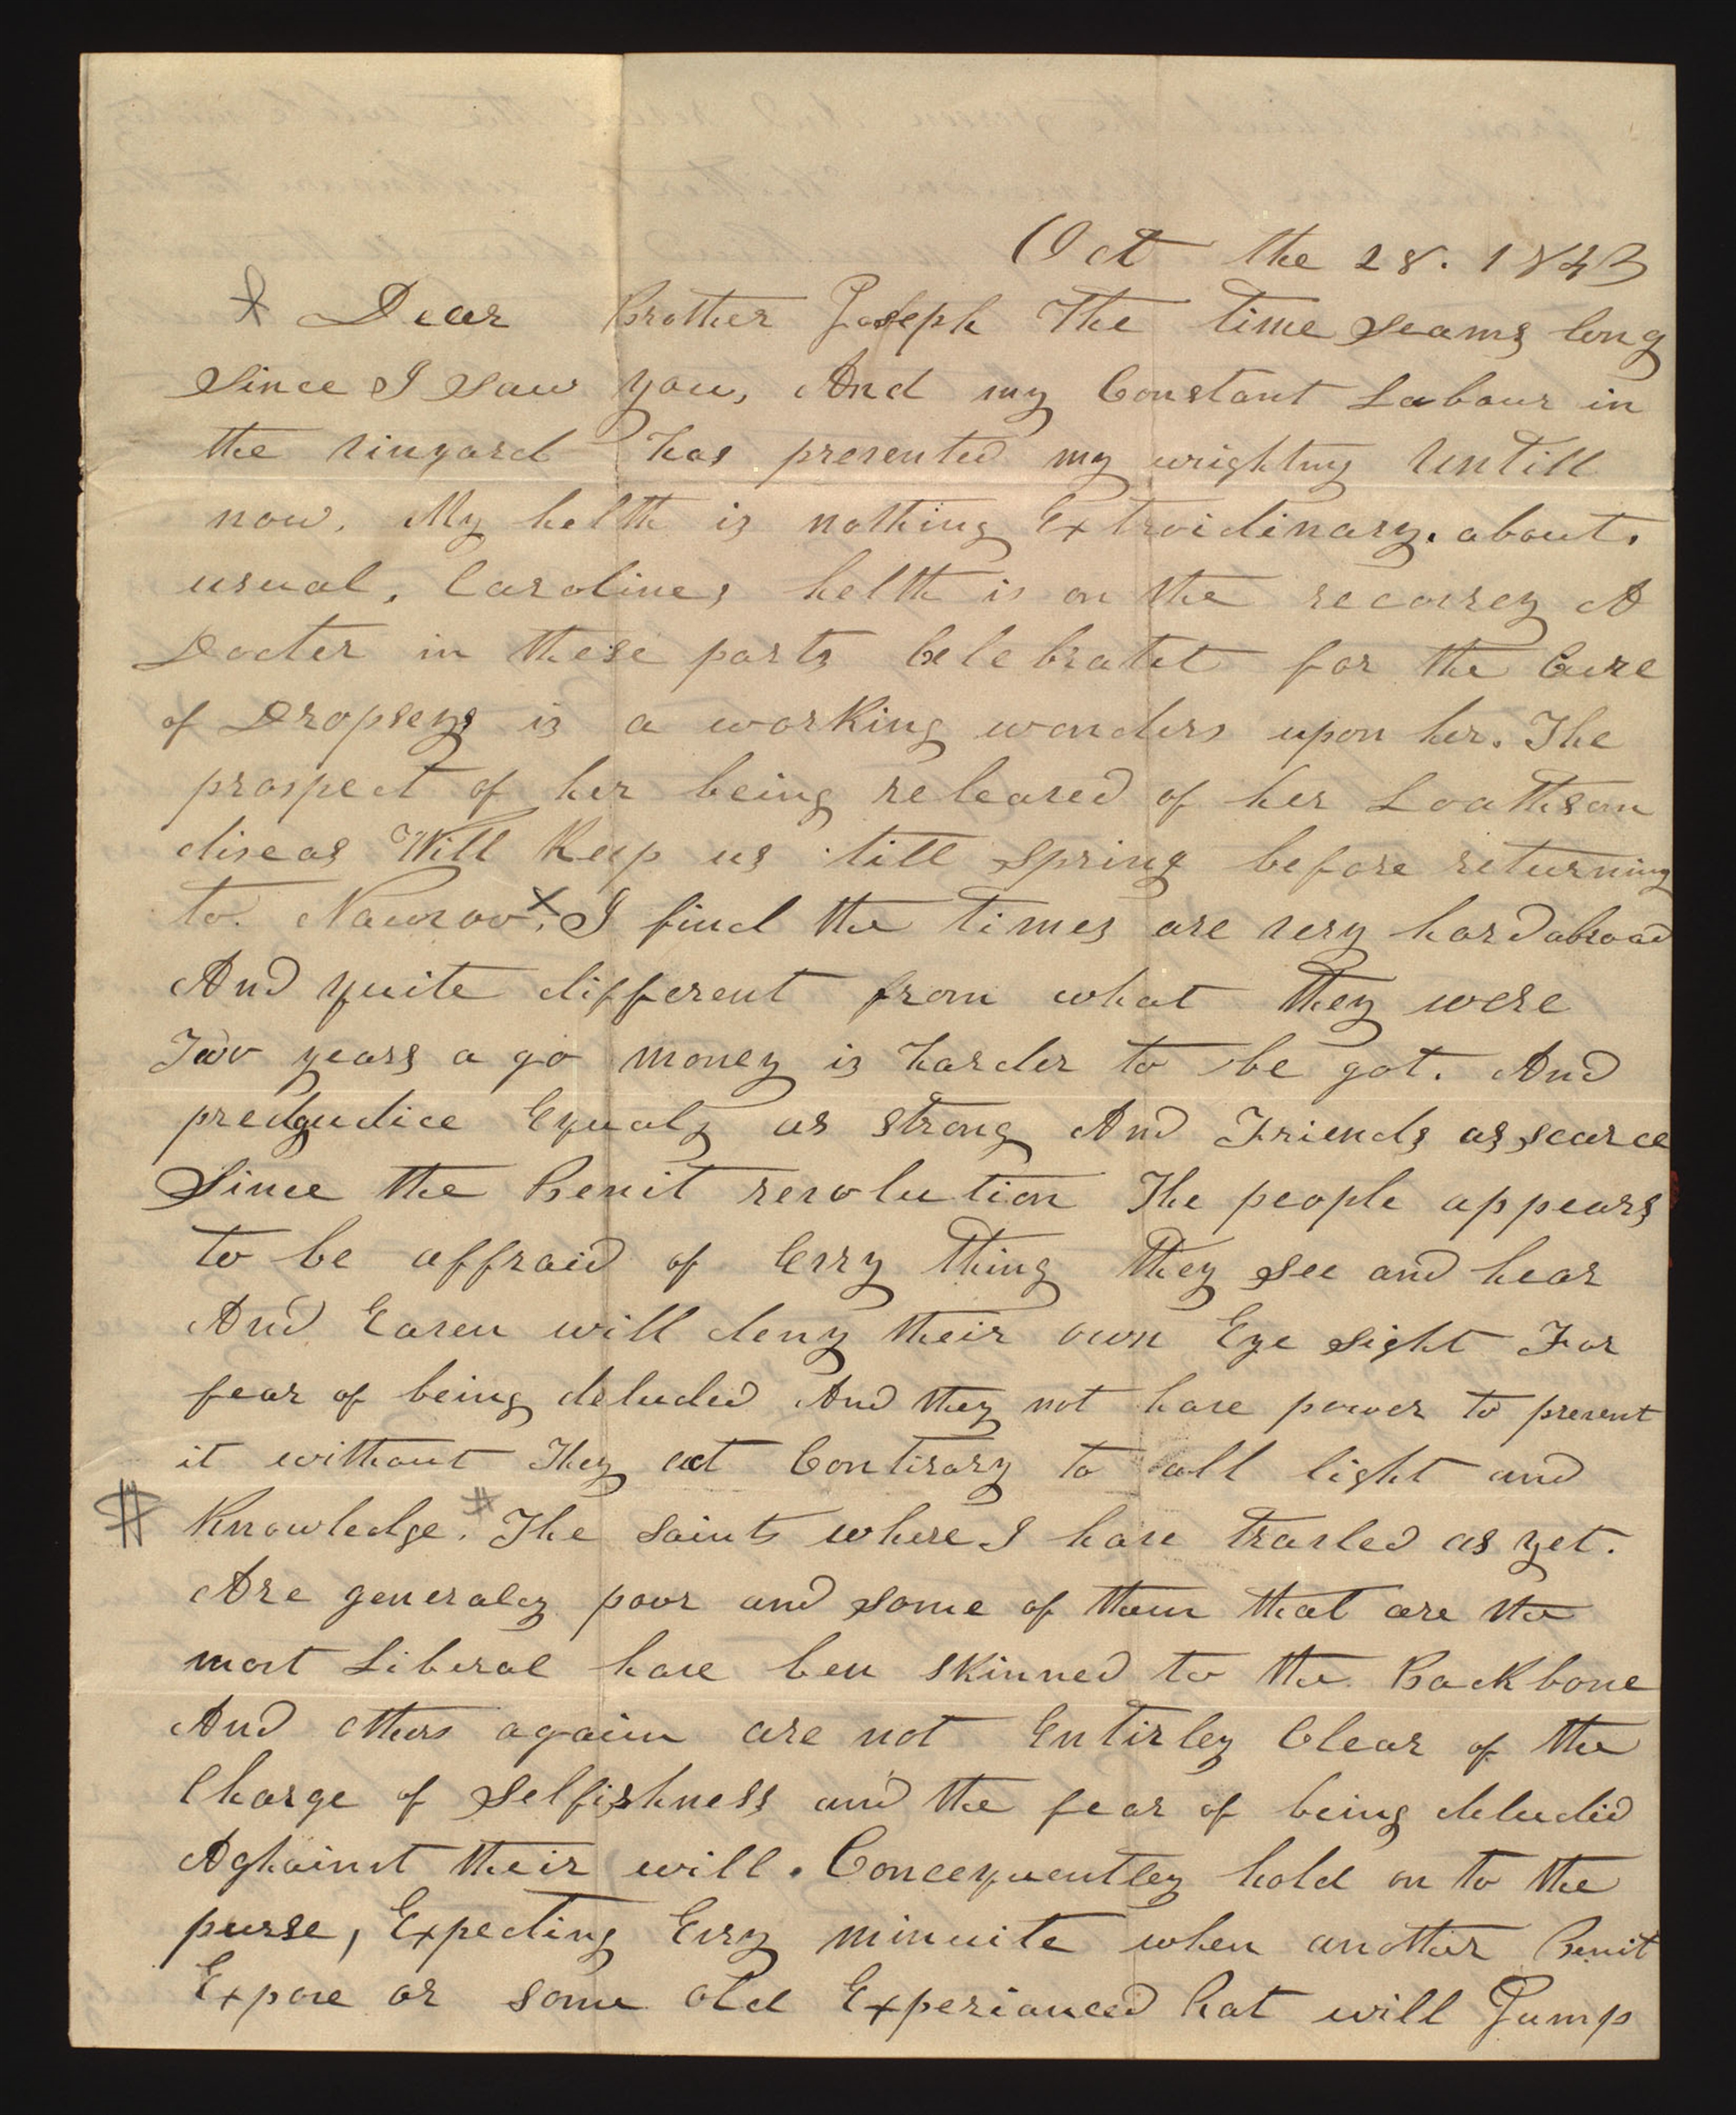 Oct the 28. 1843
Dear Brother Joseph The time seams long
Since I Saw you, And my Constant Labour in
the vinyard has prevented my wrighting Untill
now. My helth is nothing Extroidinary. about.
usual, Carolines helth is on the recovrey A
Docter in these parts Celebratet for the Cure
of Dropseys is a working wonders upon her. The
prospect of her being released of her Loathsom
diseas Will Keep us till Spring before returning
to. Nauvoo x. I find the times are very hard abroad
And quite different from what they were
Two years a go money is harder to be got. And
predgudice Equaly as strong And Friends as scarce
Since the Benit revolution The people appears
to be affraid of Evry thing they See and hear
And Eaven will deny their own Eye Sight For
fear of being deluded And they not have power to prevent
it without They act Contirary to all light and
# Knowledge. # The Saints where I have travled as yet.
Are generaley poor and Some of them that are the
most Liberal have ben skinned to the Backbone
And others again are not Entirley Clear of the
Charge of Selfishness and the fear of being deluded
Aghainst their will. Concequentley hold on to the
purse, Expecting Evry minuite when another Benit
Expose or some old Experianced hat will Jump